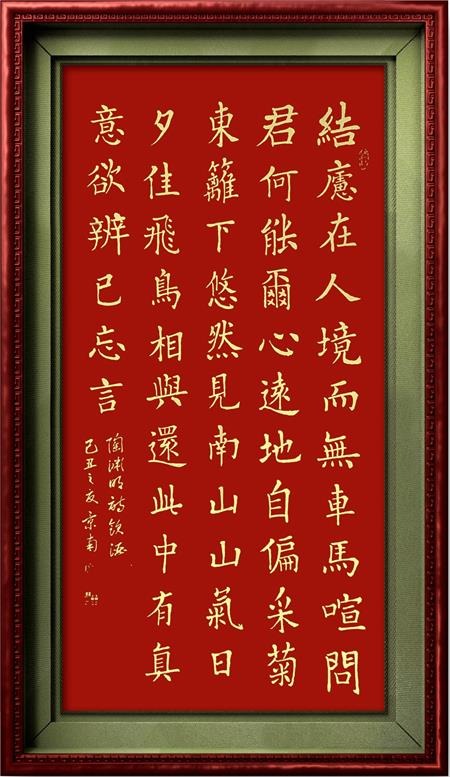 結廬在人境而無車馬喧問
君何能爾心遠地自偏采菊
東籬下悠然見南山山氣日
夕佳飛鳥相與還此中有真
意欲辨已忘言
陶淵明詩飲酒
己丑之夏京南